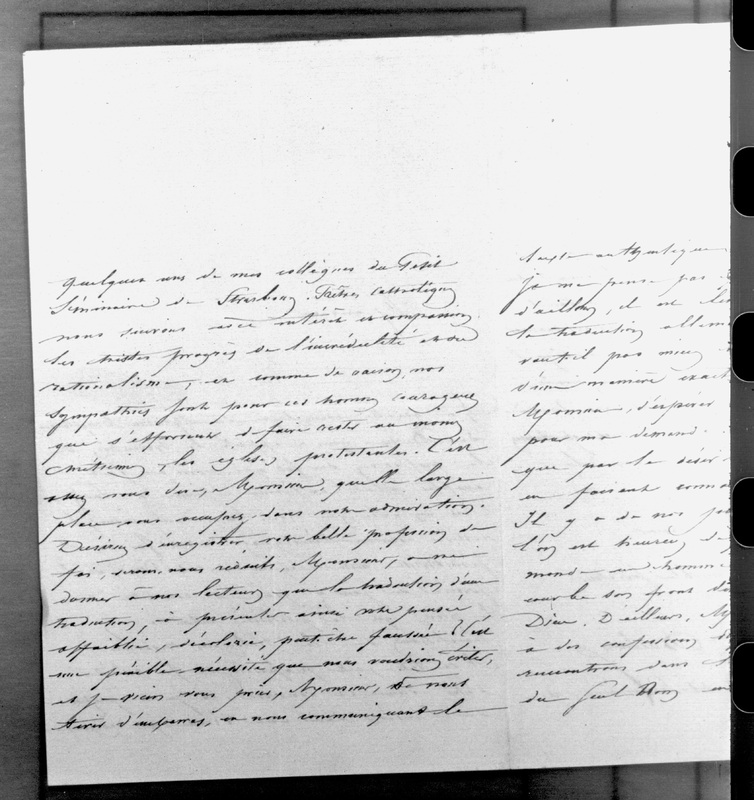 quelques uns de mes collègues du Petit
Séminaire de Strasbourg. Prêtres catholiques,
nous suivons avec intérêt et compassion
les tristes progrès de l'incrédulité et du
rationalisme, et comme de raison, nos
sympathies sont pour ces hommes courageux
que s'efforcent de faire rester au moins
chrétiennes, les églises protestantes. C'est
assez vous dire, Monsieur, quelle large
place vous occupez dans notre admiration.
Désireux d'enregistrer votre belle profession de
foi, serons-nous réduits, Monsieur, à ne
donner à nos lecteurs que la traduction d'une
traduction, à présenter ainsi votre pensée
affaiblie, décolorée, peut-être faussée? C'est
une pénible nécessité que nous voudrions éviter,
et je viens vous prier, Monsieur, de nous
tirer d'embarras, en nous communiquant le
texte authentique
je ne pense pas
d'ailleurs, il est
la traduction allem
vaut-il pas mieux
d'une manière exact
Monsieur, d'espérer
pour ma demande.
que par le désir
en faisant conna
Il y a de nos jo
l'on est heureux de
monde un homme
courbe son front d
Dieu. D'ailleurs, M
à des confessions
rencontrons dans
du Seul Bon